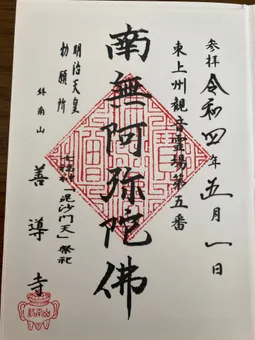 参拝 令和四年五月一日
東上州観音霊場第五番
南無阿弥陀佛
明治天皇
勅願所
七福神「毘沙門天」祭祀
終南山
善導寺